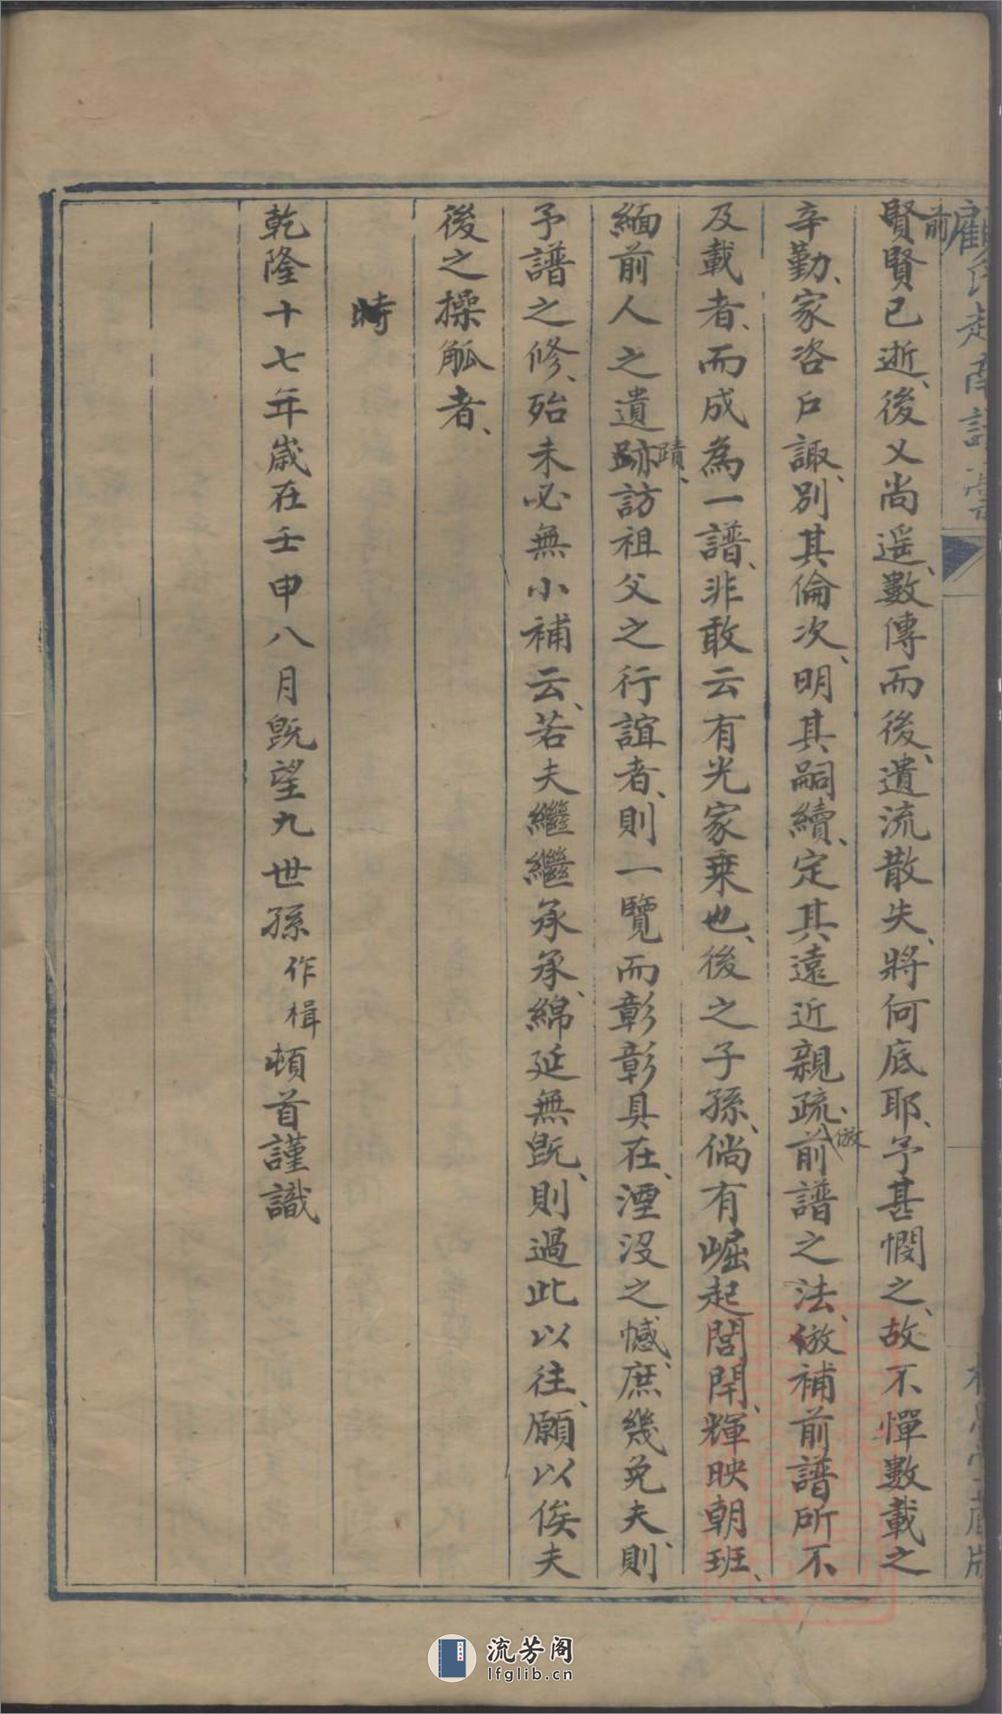 前賢賢已逝、後乂尚遥、數傳而後、遺流散失、將何底耶、予甚憫之、故不憚數載之
辛勤、家咨戶諏、別其倫次、明其嗣續、定其遠近親疏、倣前譜之法、倣補前譜所不
及載者、而成為一譜、非敢云有光家乗也、後之子孫、倘有崛起閭閈、輝映朝班、
緬前人之遺跡蹟、訪祖父之行誼者、則一覽而彰彰具在、湮沒之憾、庶幾免夫、則
予譜之修、殆未必無小補云、若夫繼繼承承、綿延無既、則過此以往、願以俟夫
後之操觚者、
時
乾隆十七年歲在壬申八月既望九世孫作楫頓首謹識
流芳阁
lfglib.cn